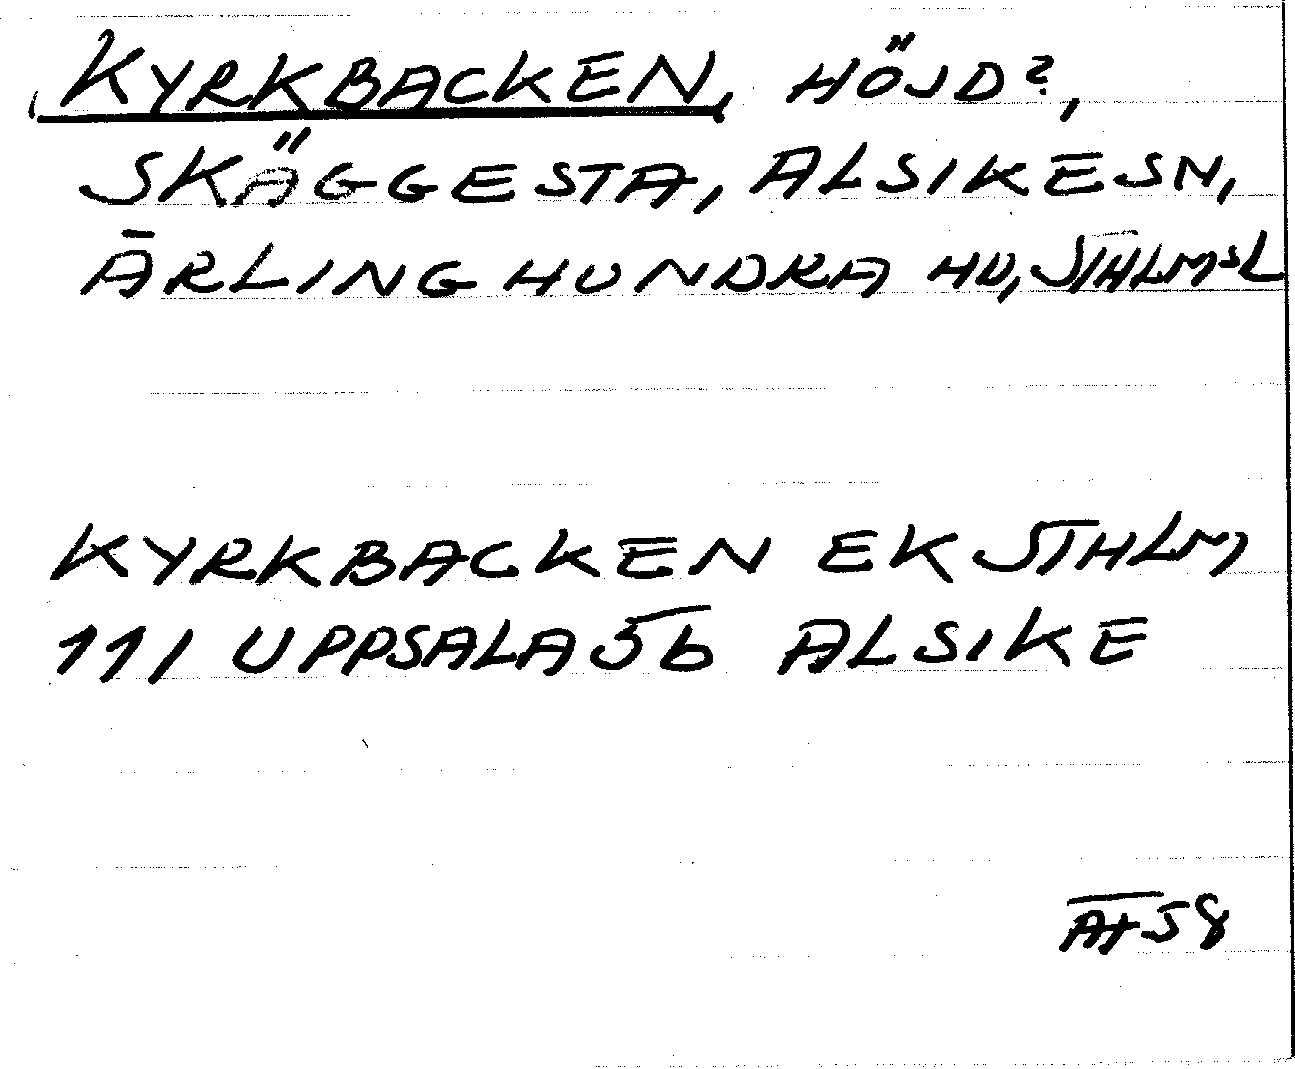 KYRKBACKEN, HÖJD?,
SKÄGGESTA, ALSIKE SN,
ÄRLINGHUNDRA HD, STHLMS L
KYRKBACKEN EK STHLM
111 UPPSALA 5b ALSIKE
AT 58